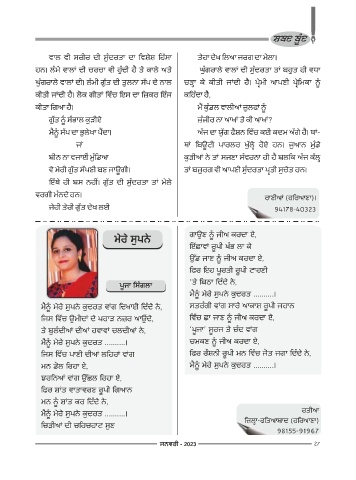 ਸ਼ਬਦ ਬੂੰਦ
ਵਾਲ ਵੀ ਸਰੀਰ ਦੀ ਸੁੰਦਰਤਾ ਦਾ ਵਿਸ਼ੇਸ਼ ਹਿੱਸਾ
ਹਨ। ਲੰਮੇ ਵਾਲਾਂ ਦੀ ਚਰਚਾ ਵੀ ਹੁੰਦੀ ਹੈ ਤੇ ਕਾਲੇ ਅਤੇ
ਘੁੰਗਰਾਲੇ ਵਾਲਾਂ ਦੀ। ਲੰਮੀ ਗੁੱਤ ਦੀ ਤੁਲਨਾ ਸੱਪ ਦੇ ਨਾਲ
ਕੀਤੀ ਜਾਂਦੀ ਹੈ। ਲੋਕ ਗੀਤਾਂ ਵਿੱਚ ਇਸ ਦਾ ਜ਼ਿਕਰ ਇੰਜ
ਕੀਤਾ ਗਿਆ ਹੈ।
ਗੁੱਤ ਨੂੰ ਸੰਭਾਲ ਕੁੜੀਏ
ਮੈਨੂੰ ਸੱਪ ਦਾ ਭੁਲੇਖਾ ਪੈਂਦਾ।
ਜਾਂ
ਬੀਨ ਨਾ ਵਜਾਈਂ ਮੁੰਡਿਆ
ਵੇ ਮੇਰੀ ਗੁੱਤ ਸੱਪਣੀ ਬਣ ਜਾਊਗੀ।
ਇੱਥੇ ਹੀ ਬਸ ਨਹੀਂ। ਗੁੱਤ ਦੀ ਸੁੰਦਰਤਾ ਤਾਂ ਮੇਲੇ
ਵਰਗੀ ਮੰਨਦੇ ਹਨ।
ਜੇਹੀ ਤੇਰੀ ਗੁੱਤ ਦੇਖ ਲਈ
ਤੇਹਾ ਦੇਖ ਲਿਆ ਜਰਗ ਦਾ ਮੇਲਾ।
ਘੁੰਗਰਾਲੇ ਵਾਲਾਂ ਦੀ ਸੁੰਦਰਤਾ ਤਾਂ ਬਹੁਤ ਹੀ ਵਧਾ
ਚੜ੍ਹਾ ਕੇ ਕੀਤੀ ਜਾਂਦੀ ਹੈ। ਪ੍ਰੇਮੀ ਆਪਣੀ ਪ੍ਰੇਮਿਕਾ ਨੂੰ
ਕਹਿੰਦਾ ਹੈ,
ਮੈਂ ਕੁੰਡਲ ਵਾਲੀਆਂ ਜ਼ੁਲਫ਼ਾਂ ਨੂੰ
ਜ਼ੰਜੀਰ ਨਾ ਆਖਾਂ ਤੇ ਕੀ ਆਖਾਂ?
ਅੱਜ ਦਾ ਯੁੱਗ ਫੈਸ਼ਨ ਵਿੱਚ ਕਈ ਕਦਮ ਅੱਗੇ ਹੈ। ਥਾਂ-
ਥਾਂ ਬਿਊਟੀ ਪਾਰਲਰ ਖੁੱਲ੍ਹੇ ਹੋਏ ਹਨ। ਜੁਆਨ ਮੁੰਡੇ
ਕੁੜੀਆਂ ਨੇ ਤਾਂ ਸਜਣਾ ਸੰਵਰਨਾ ਹੀ ਹੈ ਬਲਕਿ ਅੱਜ ਕੱਲ੍ਹ
ਤਾਂ ਬਜ਼ੁਰਗ ਵੀ ਆਪਣੀ ਸੁੰਦਰਤਾ ਪ੍ਰਤੀ ਸੁਚੇਤ ਹਨ।
ਰਾਣੀਆਂ (ਹਰਿਆਣਾ)।
94178-40323
ਮੇਰੇ ਸੁਪਨੇ
ਪੂਜਾ ਸਿੰਗਲਾ
ਮੈਨੂੰ ਮੇਰੇ ਸੁਪਨੇ ਕੁਦਰਤ ਵਾਂਗ ਦਿਖਾਈ ਦਿੰਦੇ ਨੇ,
ਜਿਸ ਵਿੱਚ ਉਮੀਦਾਂ ਦੇ ਪਹਾੜ ਨਜ਼ਰ ਆਉਂਦੇ,
ਤੇ ਬੁਲੰਦੀਆਂ ਦੀਆਂ ਹਵਾਵਾਂ ਚਲਦੀਆਂ ਨੇ,
ਮੈਨੂੰ ਮੇਰੇ ਸੁਪਨੇ ਕੁਦਰਤ ..........।
ਜਿਸ ਵਿੱਚ ਪਾਣੀ ਦੀਆਂ ਲਹਿਰਾਂ ਵਾਂਗ
ਮਨ ਡੋਲ ਰਿਹਾ ਏ,
ਝਰਨਿਆਂ ਵਾਂਗ ਉੱਛਲ ਰਿਹਾ ਏ,
ਫਿਰ ਸ਼ਾਂਤ ਵਾਤਾਵਰਣ ਰੂਪੀ ਗਿਆਨ
ਮਨ ਨੂੰ ਸ਼ਾਂਤ ਕਰ ਦਿੰਦੇ ਨੇ,
ਮੈਨੂੰ ਮੇਰੇ ਸੁਪਨੇ ਕੁਦਰਤ ..........।
ਚਿੜੀਆਂ ਦੀ ਚਹਿਚਹਾਟ ਸੁਣ
ਗਾਉਣ ਨੂੰ ਜੀਅ ਕਰਦਾ ਏ,
ਇੱਛਾਵਾਂ ਰੂਪੀ ਖੰਭ ਲਾ ਕੇ
ਉੱਡ ਜਾਣ ਨੂੰ ਜੀਅ ਕਰਦਾ ਏ,
ਫਿਰ ਇਹ ਪੂਰਤੀ ਰੂਪੀ ਟਾਹਣੀ
'ਤੇ ਬਿਠਾ ਦਿੰਦੇ ਨੇ,
ਮੈਨੂੰ ਮੇਰੇ ਸੁਪਨੇ ਕੁਦਰਤ ..........।
ਸਤਰੰਗੀ ਵਾਂਗ ਸਾਰੇ ਆਕਾਸ਼ ਰੂਪੀ ਜਹਾਨ
ਵਿੱਚ ਛਾ ਜਾਣ ਨੂੰ ਜੀਅ ਕਰਦਾ ਏ,
'ਪੂਜਾ' ਸੂਰਜ ਤੇ ਚੰਦ ਵਾਂਗ
ਚਮਕਣ ਨੂੰ ਜੀਅ ਕਰਦਾ ਏ,
ਫਿਰ ਰੌਸ਼ਨੀ ਰੂਪੀ ਮਨ ਵਿੱਚ ਜੋਤ ਜਗਾ ਦਿੰਦੇ ਨੇ,
ਮੈਨੂੰ ਮੇਰੇ ਸੁਪਨੇ ਕੁਦਰਤ ..........।
ਰਤੀਆ
ਜ਼ਿਲ੍ਹਾ-ਫਤਿਆਬਾਦ (ਹਰਿਆਣਾ)
98155-91967
ਜਨਵਰੀ - 2023
27